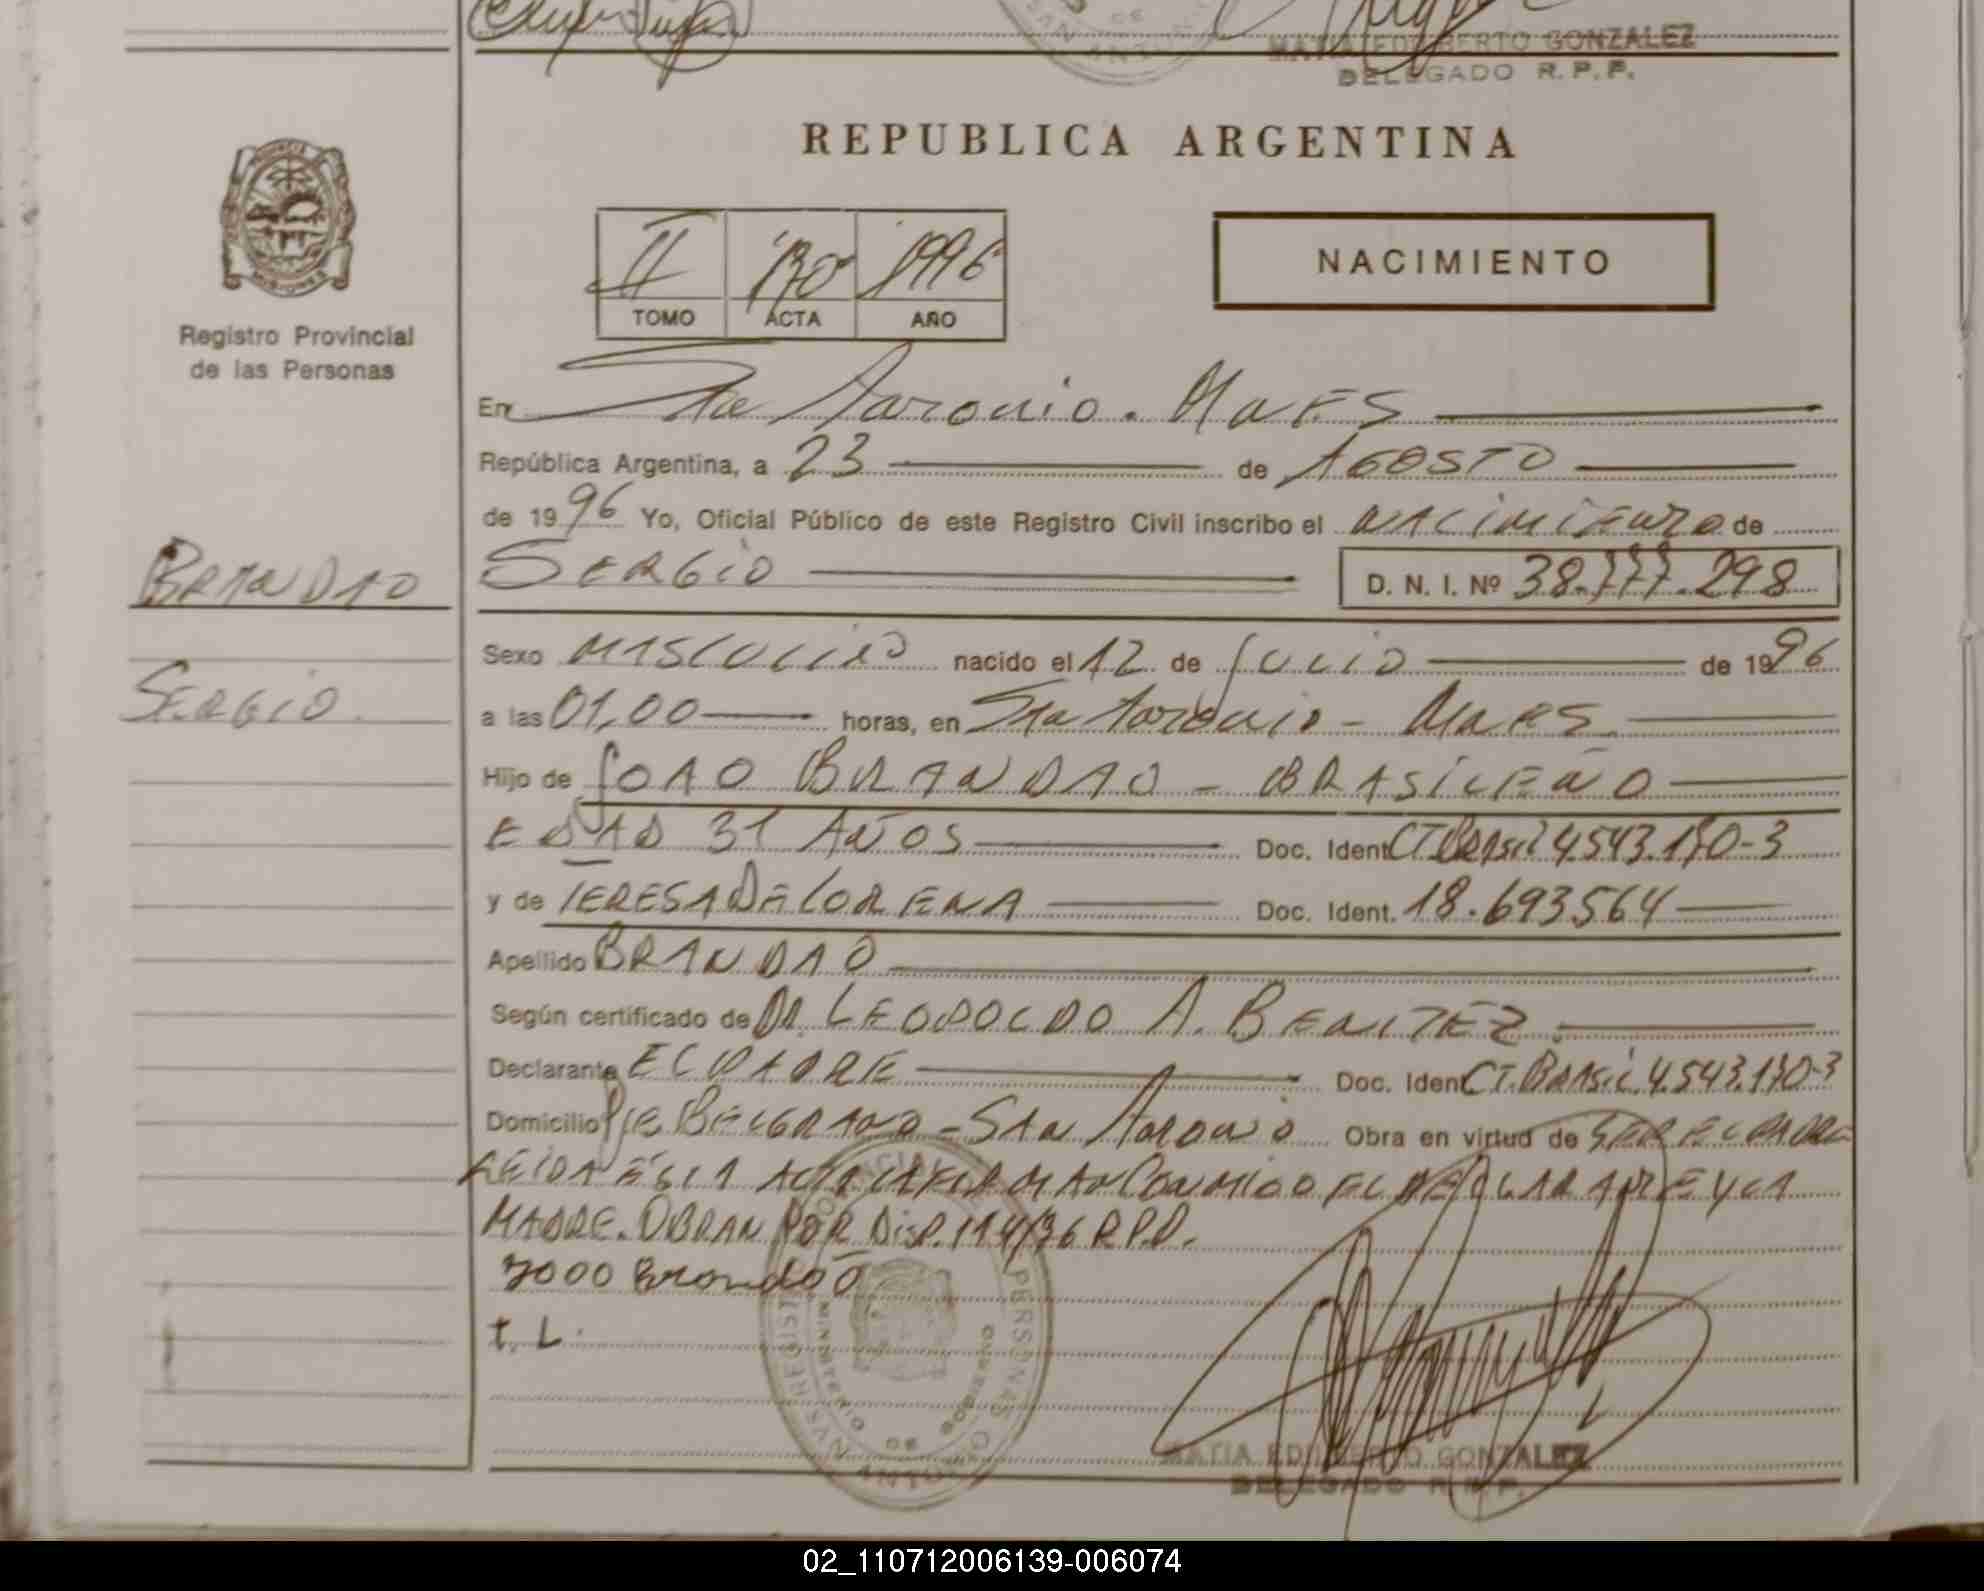 MATIA EDILBERTO GONZALEZ
DELEGADO R. P. P.
REPUBLICA ARGENTINA
II 170 1996
TOMO ACTA AÑO
NACIMIENTO
Registro Provincial
de las Personas
En San Antonio. Mnes
República Argentina, a 23 de AGOSTO
de 1996 Yo, Oficial Público de este Registro Civil inscribo el NACIMIENTO de
BRANDAO
SERGIO
D. N. I. Nº 38.777.298
SERGIO
Sexo MASCULINO nacido el 12 de JULIO de 1996
a las 01,00 horas, en San Antonio - Mnes
Hijo de JOAO BRANDAO - BRASILEÑO
EDAD 31 AÑOS Doc. Ident CT. Brasil 4.543.170-3
y de TERESA DE LORENA Doc. Ident. 18.693564
Apellido BRANDAO
Según certificado de DR. LEOPOLDO A. BENITEZ.
Declarante EL PADRE Doc. Ident CT. BRASIL 4.543.170-3
Domicilio PJE BELGRANO - SAN Antonio Obra en virtud de SER EL PADRE
LEIDA ESTA ACTA LA FIRMAN CONMIGO EL DECLARANTE Y LA
MADRE. OBRAN POR DISP. 114/96 R.P.P.
Joao Brandao
t. L.
REGISTRO PROVINCIAL DE LAS PERSONAS
MINISTERIO DE GOBIERNO
SAN ANTONIO
MATIA EDILBERTO GONZALEZ
DELEGADO R. P. P.
02_110712006139-006074